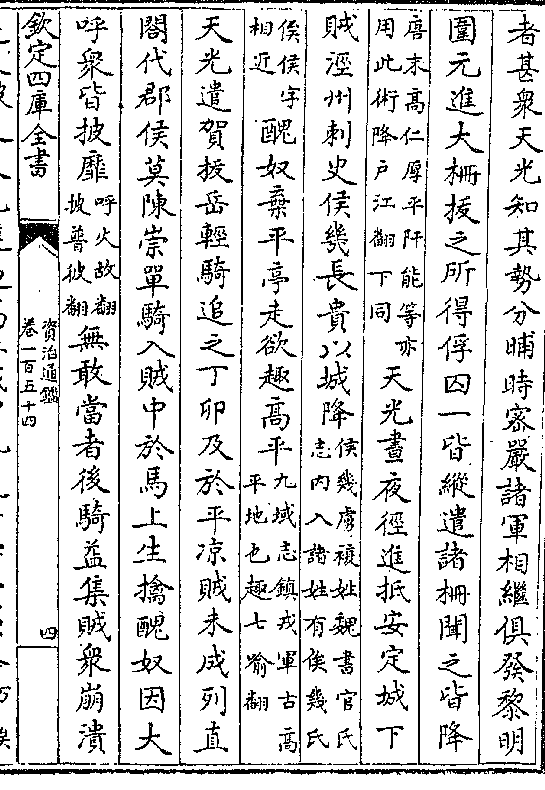 者甚衆天光知其勢分晡時宻嚴諸軍相繼俱發黎明
圍元進大柵拔之所得俘囚一皆縱遣諸柵聞之皆降
唐末髙仁厚平阡能等亦
用此術降户江翻下同
天光晝夜徑進抵安定城下
賊涇州刺史侯幾長貴以城降
侯幾虜複姓魏書官氏
志内入諸姓有俟幾氏
俟侯字
相近
醜奴棄平亭走欲趣髙平
九域志鎮戎軍古髙
平地也趣七喻翻
天光遣賀拔岳輕騎追之丁卯及於平凉賊未成列直
閤代郡侯莫陳崇單騎入賊中於馬上生擒醜奴因大
呼衆皆披靡
呼火故翻
披普彼翻
無敢當者後騎益集賊衆崩潰
欽定四庫全書
資治通鑑
卷一百五十四
四